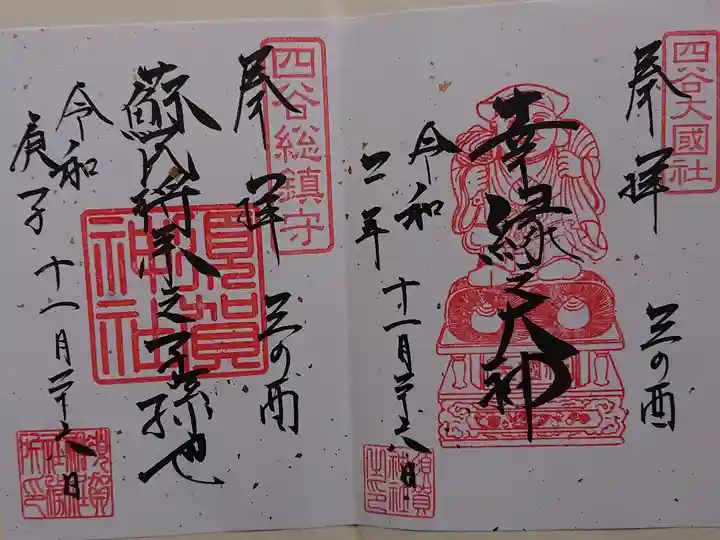 四谷大國社
奉拝
三の酉
幸縁之大神
令和二年十一月二十六日
須賀神社之印
四谷総鎮守
奉拝
三の酉
須賀神社
蘇民将来之子孫也
令和庚子十一月二十六日